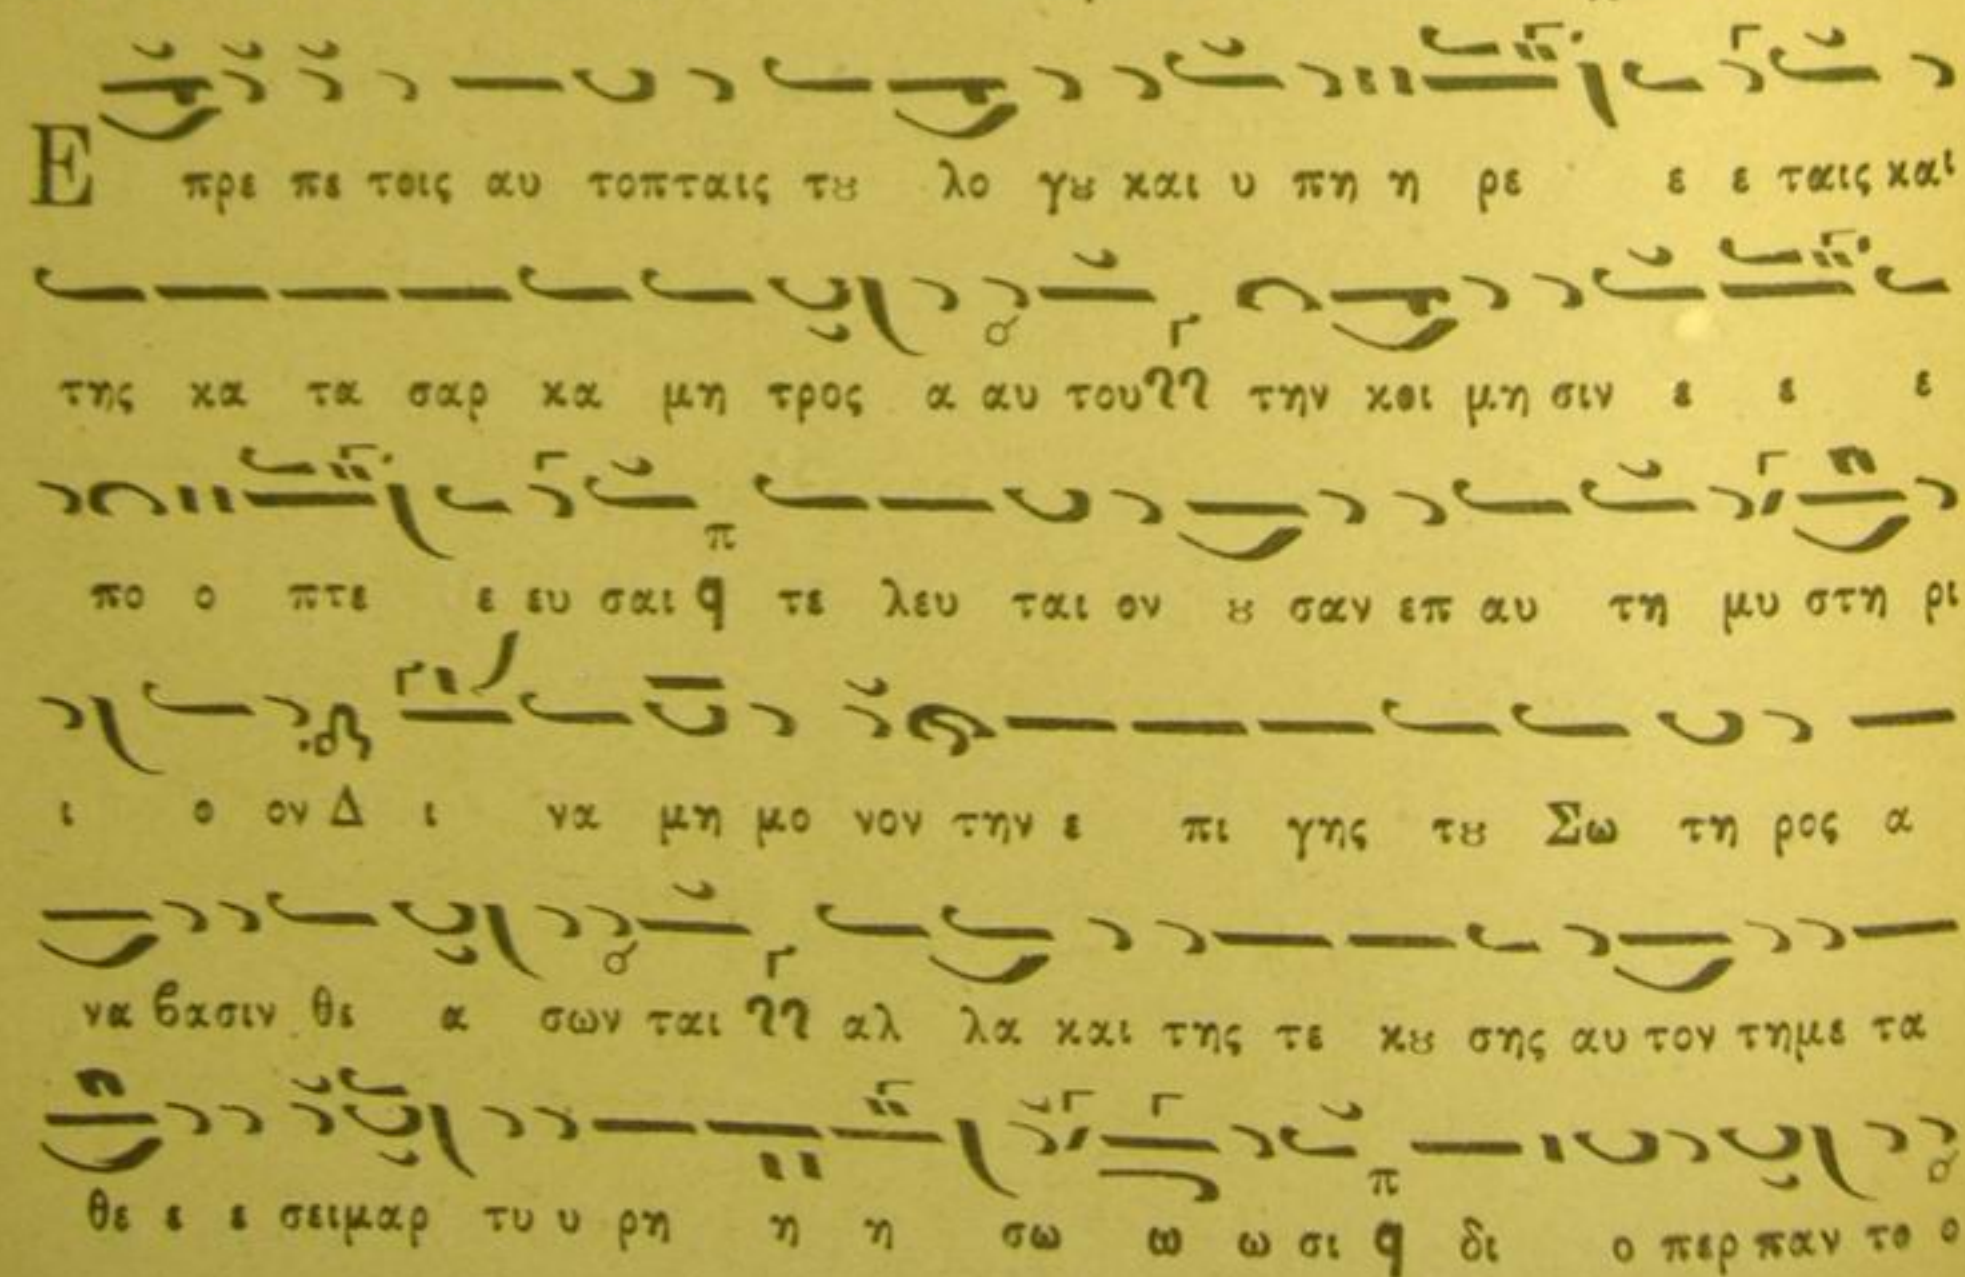 Ε πρε πε τοις αυ τοπταις τȣ λο γȣ και υ πη η ρε ε ε ταις και
της κα τα σαρ κα μη τρος α αυ του την κοι μη σιν ε ε ε
πο ο πτε ε ευ σαι π q τε λευ ται ον ȣ σαν επ αυ τη μυ στη ρι
ι ο ον Δ ι να μη μο νον την ε πι γης τȣ Σω τη ρος α
να βασιν θε α σων ται αλ λα και της τε κȣ σης αυ τον τημε τα
θε ε ε σειμαρ τυ υ ρη η η σω ω ω σι π q δι ο περ παν το ο